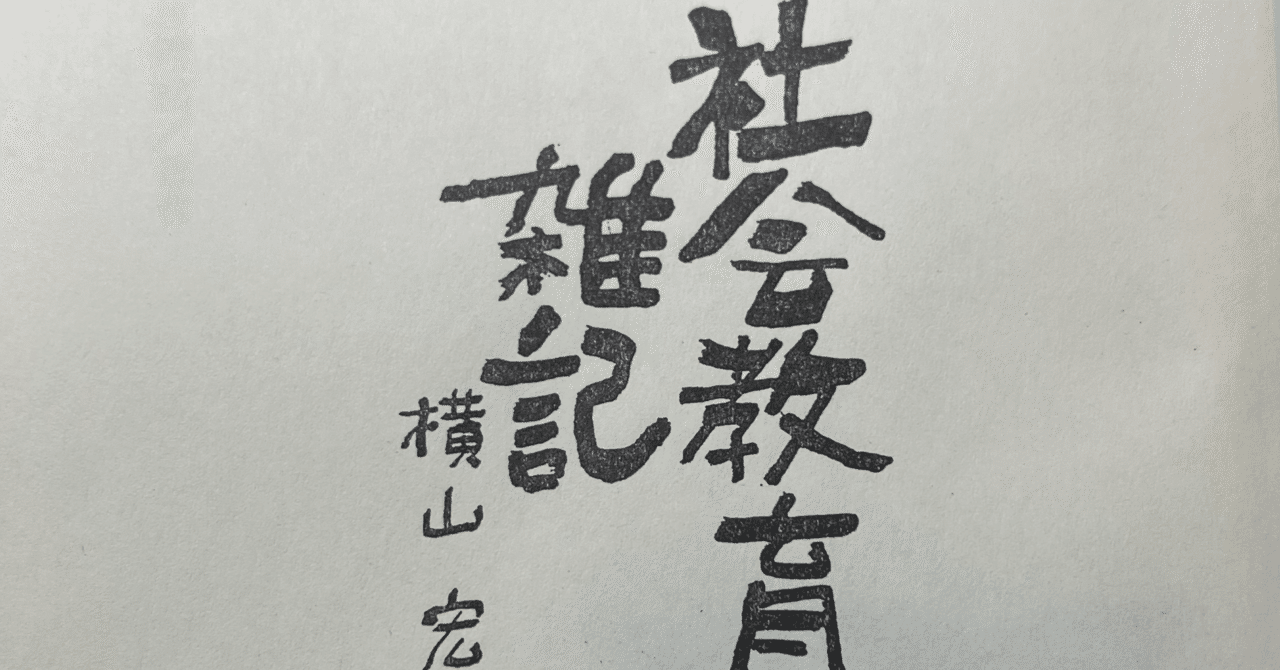 社会教育
雑記
横山宏